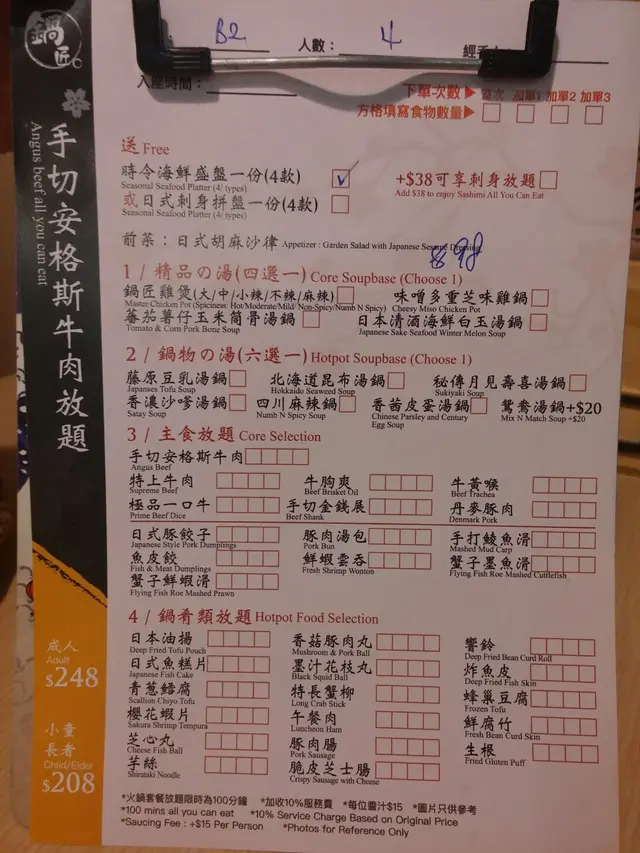 鍋匠
手切安格斯牛肉放題
Angus beef all you can eat
B2 人數： 4
入座時間：
下單次數▶ 首次 加單1 加單2 加單3
方格填寫食物數量▶
送 Free
時令海鮮盛盤一份(4款)
Seasonal Seafood Platter (4/ types)
或日式刺身拼盤一份(4款)
Seasonal Seafood Platter (4/ types)
+$38可享刺身放題
Add $38 to enjoy Sashimi All You Can Eat
前菜：日式胡麻沙律 Appetizer : Garden Salad with Japanese Sesame Dressing
1 / 精品の湯(四選一) Core Soupbase (Choose 1)
鍋匠雞煲(大/中/小辣/不辣/麻辣) 味噌多重芝味雞鍋
Master Chicken Pot (Spiciness: Hot/Moderate/Mild/ Non-Spicy/Numb N Spicy) Cheesy Miso Chicken Pot
蕃茄薯仔玉米筒骨湯鍋 日本清酒海鮮白玉湯鍋
Tomato & Corn Pork Bone Soup Japanese Sake Seafood Winter Melon Soup
2 / 鍋物の湯(六選一) Hotpot Soupbase (Choose 1)
藤原豆乳湯鍋 北海道昆布湯鍋 秘傳月見壽喜湯鍋
Japanses Tofu Soup Hokkaido Seaweed Soup Sukiyaki Soup
香濃沙嗲湯鍋 四川麻辣鍋 香茜皮蛋湯鍋 鴛鴦湯鍋+$20
Satay Soup Numb N Spicy Soup Chinese Parsley and Century Egg Soup Mix N Match Soup +$20
3 / 主食放題 Core Selection
手切安格斯牛肉
Angus Beef
特上牛肉 牛胸爽 牛黃喉
Supreme Beef Beef Brisket Oil Beef Trachea
極品一口牛 手切金錢展 丹麥豚肉
Prime Beef Dice Beef Shank Denmark Pork
日式豚餃子 豚肉湯包 手打鯪魚滑
Japanese Style Pork Dumplings Pork Bun Mashed Mud Carp
魚皮餃 鮮蝦雲吞 蟹子墨魚滑
Fish & Meat Dumplings Fresh Shrimp Wonton Flying Fish Roe Mashed Cuttlefish
蟹子鮮蝦滑
Flying Fish Roe Mashed Prawn
4 / 鍋肴類放題 Hotpot Food Selection
日本油揚 香菇豚肉丸 響鈴
Deep Fried Tofu Pouch Mushroom & Pork Ball Deep Fried Bean Curd Roll
日式魚糕片 墨汁花枝丸 炸魚皮
Japanese Fish Cake Black Squid Ball Deep Fried Fish Skin
青蔥鱈腐 特長蟹柳 蜂巢豆腐
Scallion Chiyo Tofu Long Crab Stick Frozen Tofu
櫻花蝦片 午餐肉 鮮腐竹
Sakura Shrimp Tempura Luncheon Ham Fresh Bean Curd Skin
芝心丸 豚肉腸 生根
Cheese Fish Ball Pork Sausage Fried Gluten Puff
芋絲 脆皮芝士腸
Shirataki Noodle Crispy Sausage with Cheese
成人
Adult
$248
小童
長者
Child/Elder
$208
*火鍋套餐放題限時為100分鐘 *加收10%服務費 *每位醬汁$15 *圖片只供參考
*100 mins all you can eat *10% Service Charge Based on Original Price
*Saucing Fee : +$15 Per Person *Photos for Reference Only